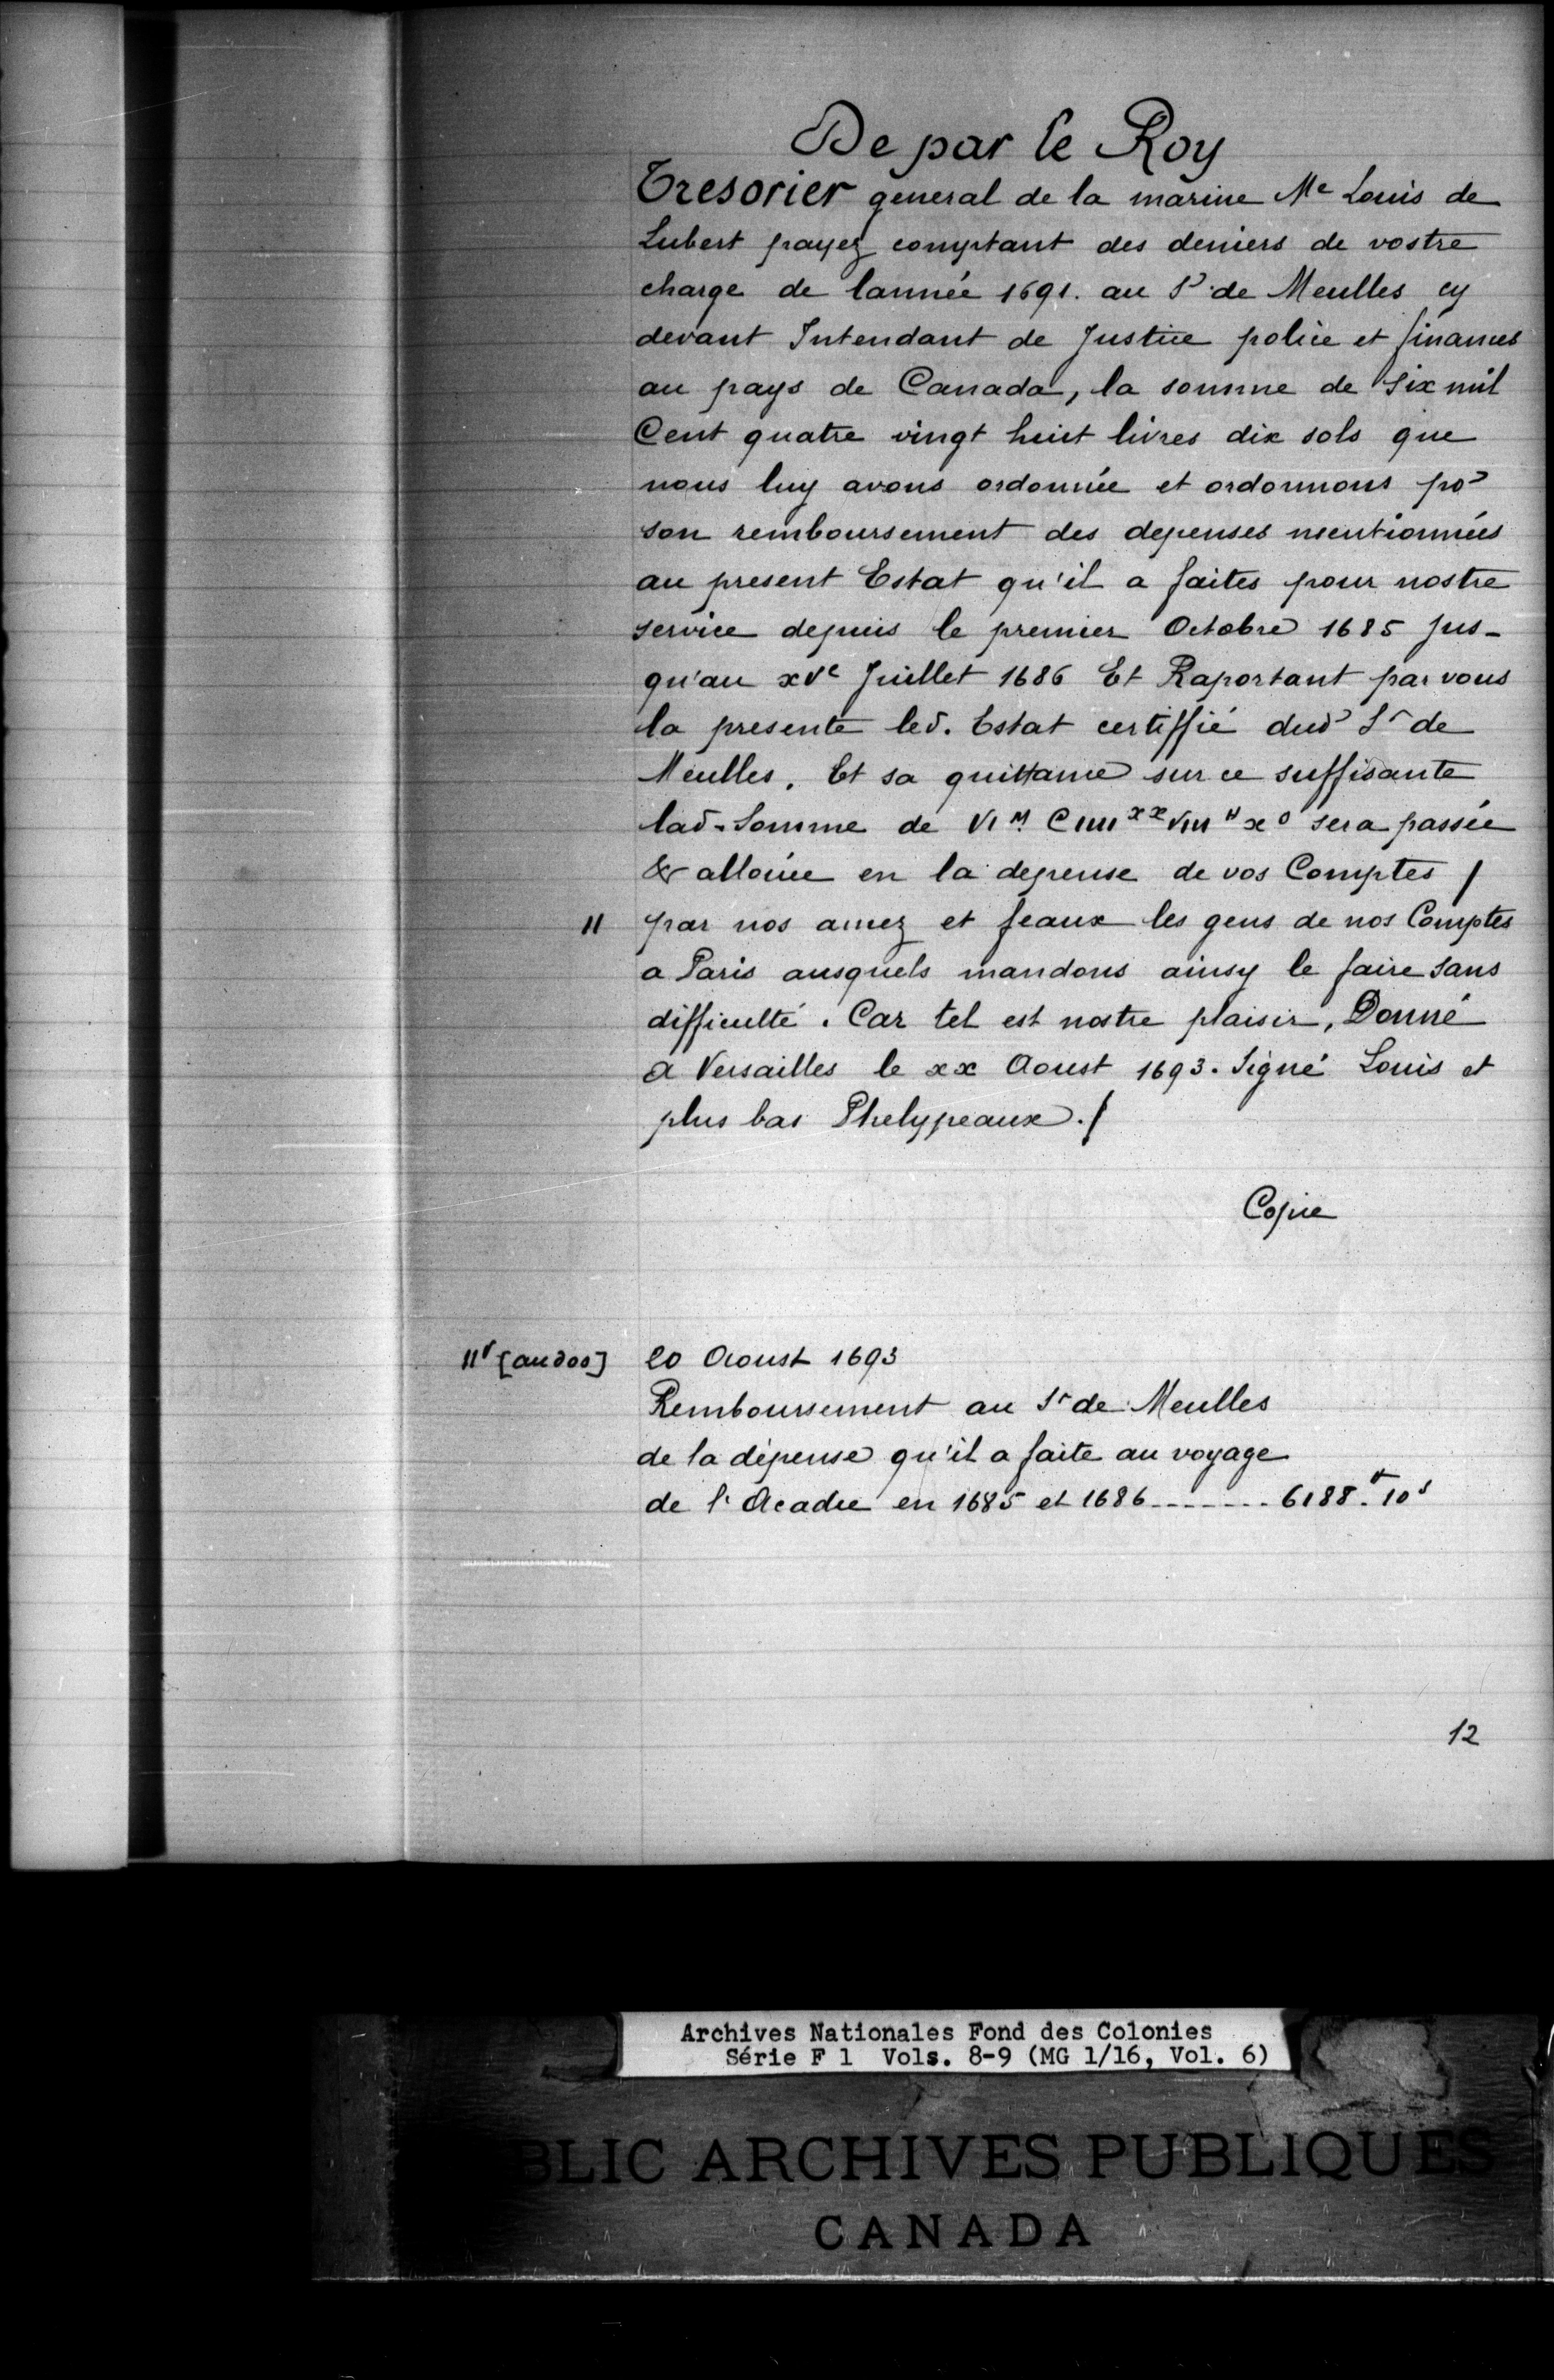 De par le Roy
Tresorier general de la marine Me Louis de
Lubert payez comptant des deniers de vostre
charge de lannée 1691. au Sr de Meulles cy
devant Intendant de Justice police et finances
au pays de Canada, la somme de Six mil
Cent quatre vingt huit livres dix sols que
nous luy avons ordonnée et ordonnons por
son remboursement des depenses mentionnées
au present Estat qu'il a faites pour nostre
service depuis le premier Octobre 1685 Jus-
qu'au xve Juillet 1686 Et Raportant par vous
la presente led. Estat certiffié dud Sr de
Meulles. Et sa quittance sur ce suffisante
lad. Somme de VIM CIIIIxxVIII# xs sera passée
& alloüée en la depense de vos Comptes /
11 par nos amez et feaux les gens de nos Comptes
a Paris ausquels mandons ainsy le faire sans
difficulté. Car tel est nostre plaisir, Donné
a Versailles le xx Aoust 1693. Signé Louis et
plus bas Phelypeaux./
Copie
11v [au dos] 20 Aoust 1693
Remboursement au Sr de Meulles
de la dépense qu'il a faite au voyage
de l'Acadie en 1685 et 1686 ------- 6188.# 10s
12
Archives Nationales Fond des Colonies
Série F 1 Vols. 8-9 (MG 1/16, Vol. 6)
BLIC ARCHIVES PUBLIQUES
CANADA